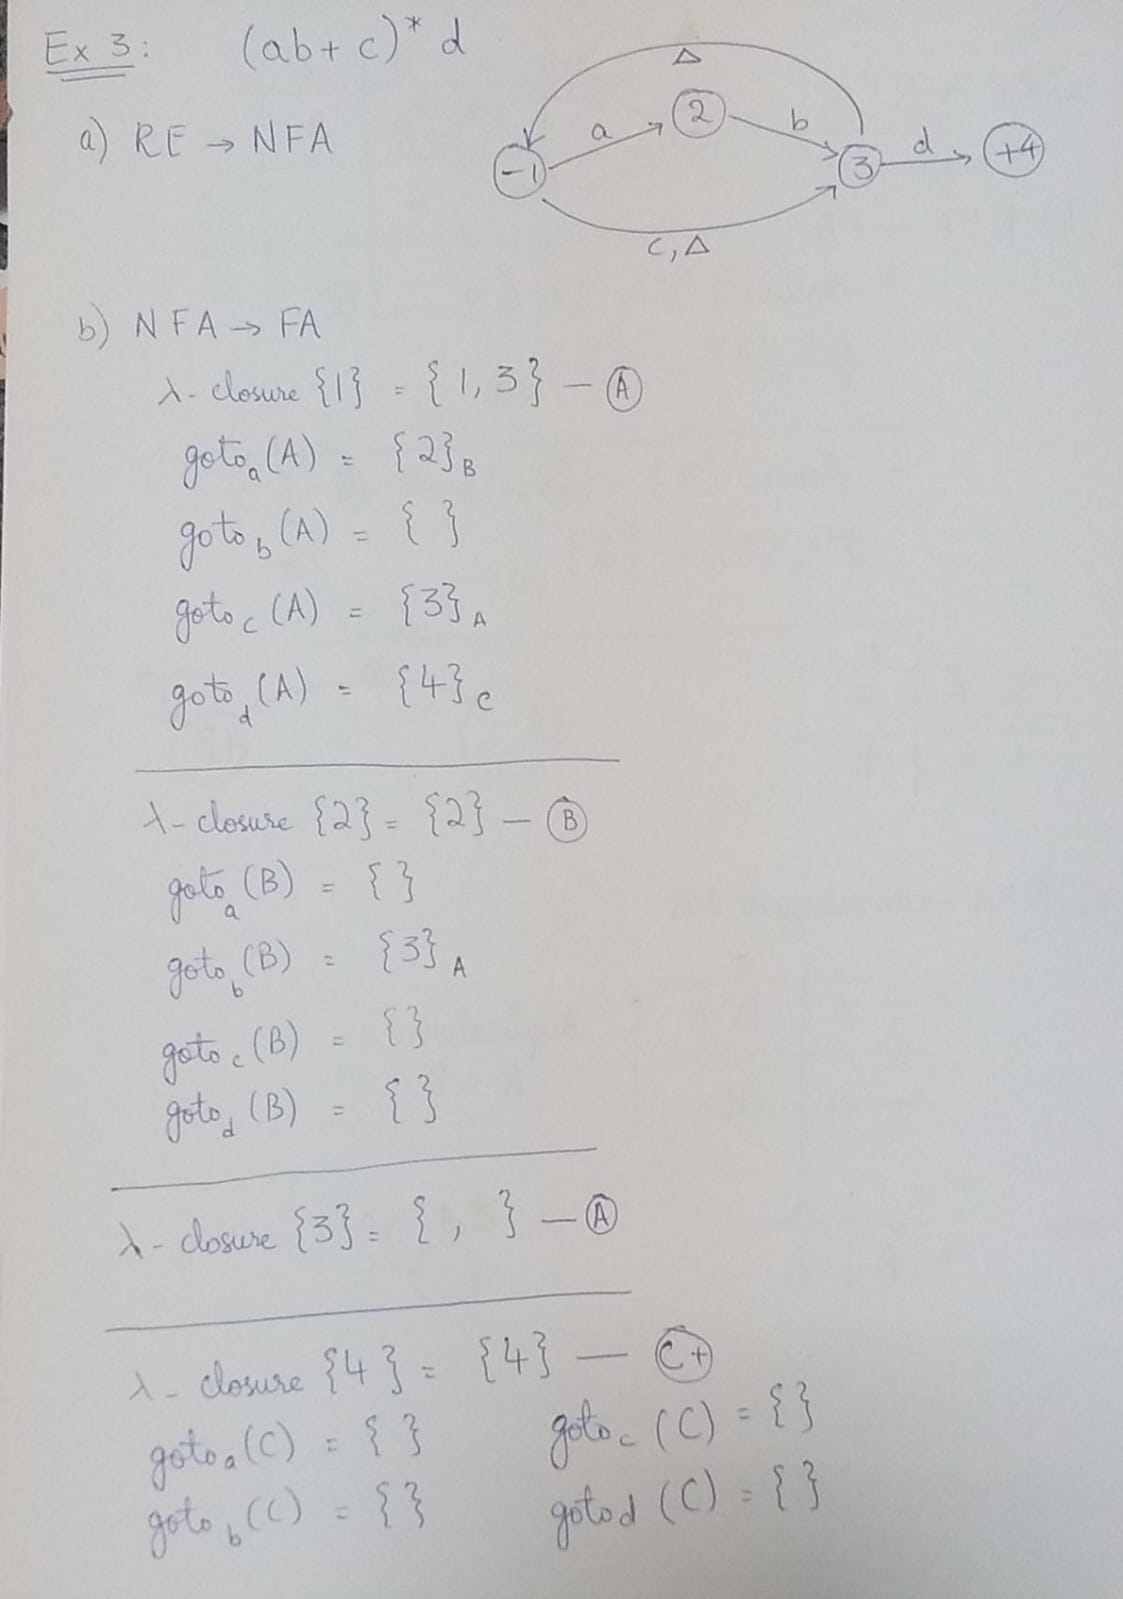 Ex 3: (ab + c)* d
a) RE → NFA
Δ
a
2
b
-1
3
d
+4
c, Δ
b) NFA → FA
λ- closure {1} = {1, 3} — A
goto a (A) = {2} B
goto b (A) = { }
goto c (A) = {3} A
goto d (A) = {4} C
λ- closure {2} = {2} — B
goto a (B) = { }
goto b (B) = {3} A
goto c (B) = { }
goto d (B) = { }
λ- closure {3} = { , } — A
λ- closure {4} = {4} — C+
goto a (C) = { } goto c (C) = { }
goto b (C) = { } goto d (C) = { }